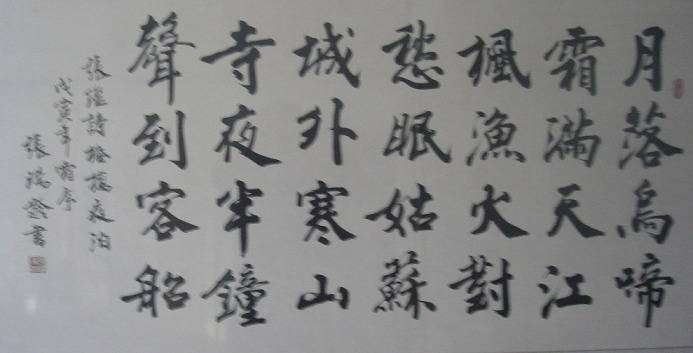 月落烏啼
霜滿天江
楓漁火對
愁眠姑蘇
城外寒山
寺夜半鐘
聲到客船
張繼詩楓橋夜泊
戊寅年
張瑞齡書